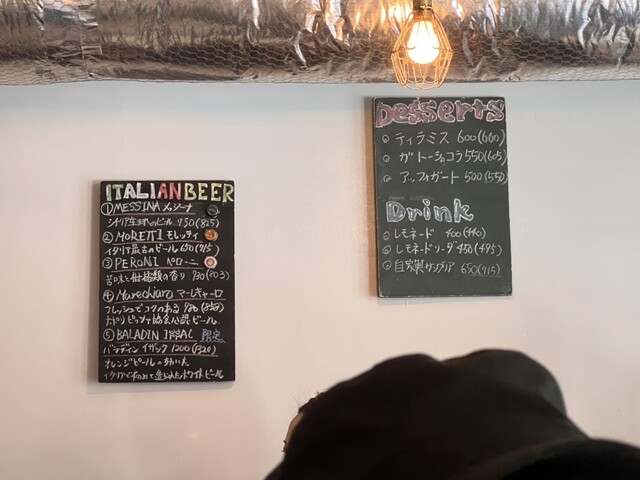 ITALIAN BEER
① MESSINA メッシーナ
シチリア生まれのビール 750 (825)
② MORETTI モレッティ
イタリア最古のビール 650 (715)
③ PERONI ペローニ
苦味と柑橘類の香り
④ マーレキャーロ
フレッシュでコクのある
ナポリピッツァ協会公認ビール
⑤ BALADIN ISSAC 限定
バラデン イザック 1200 (1320)
オレンジピールの
イタリアで初めて造られたホワイトビール
Desserts
ティラミス 600 (660)
ガトーショコラ 550 (605)
アッフォガート 500 (550)
Drink
レモネード 400 (440)
レモネードソーダ 450 (495)
自家製サングリア 650 (715)